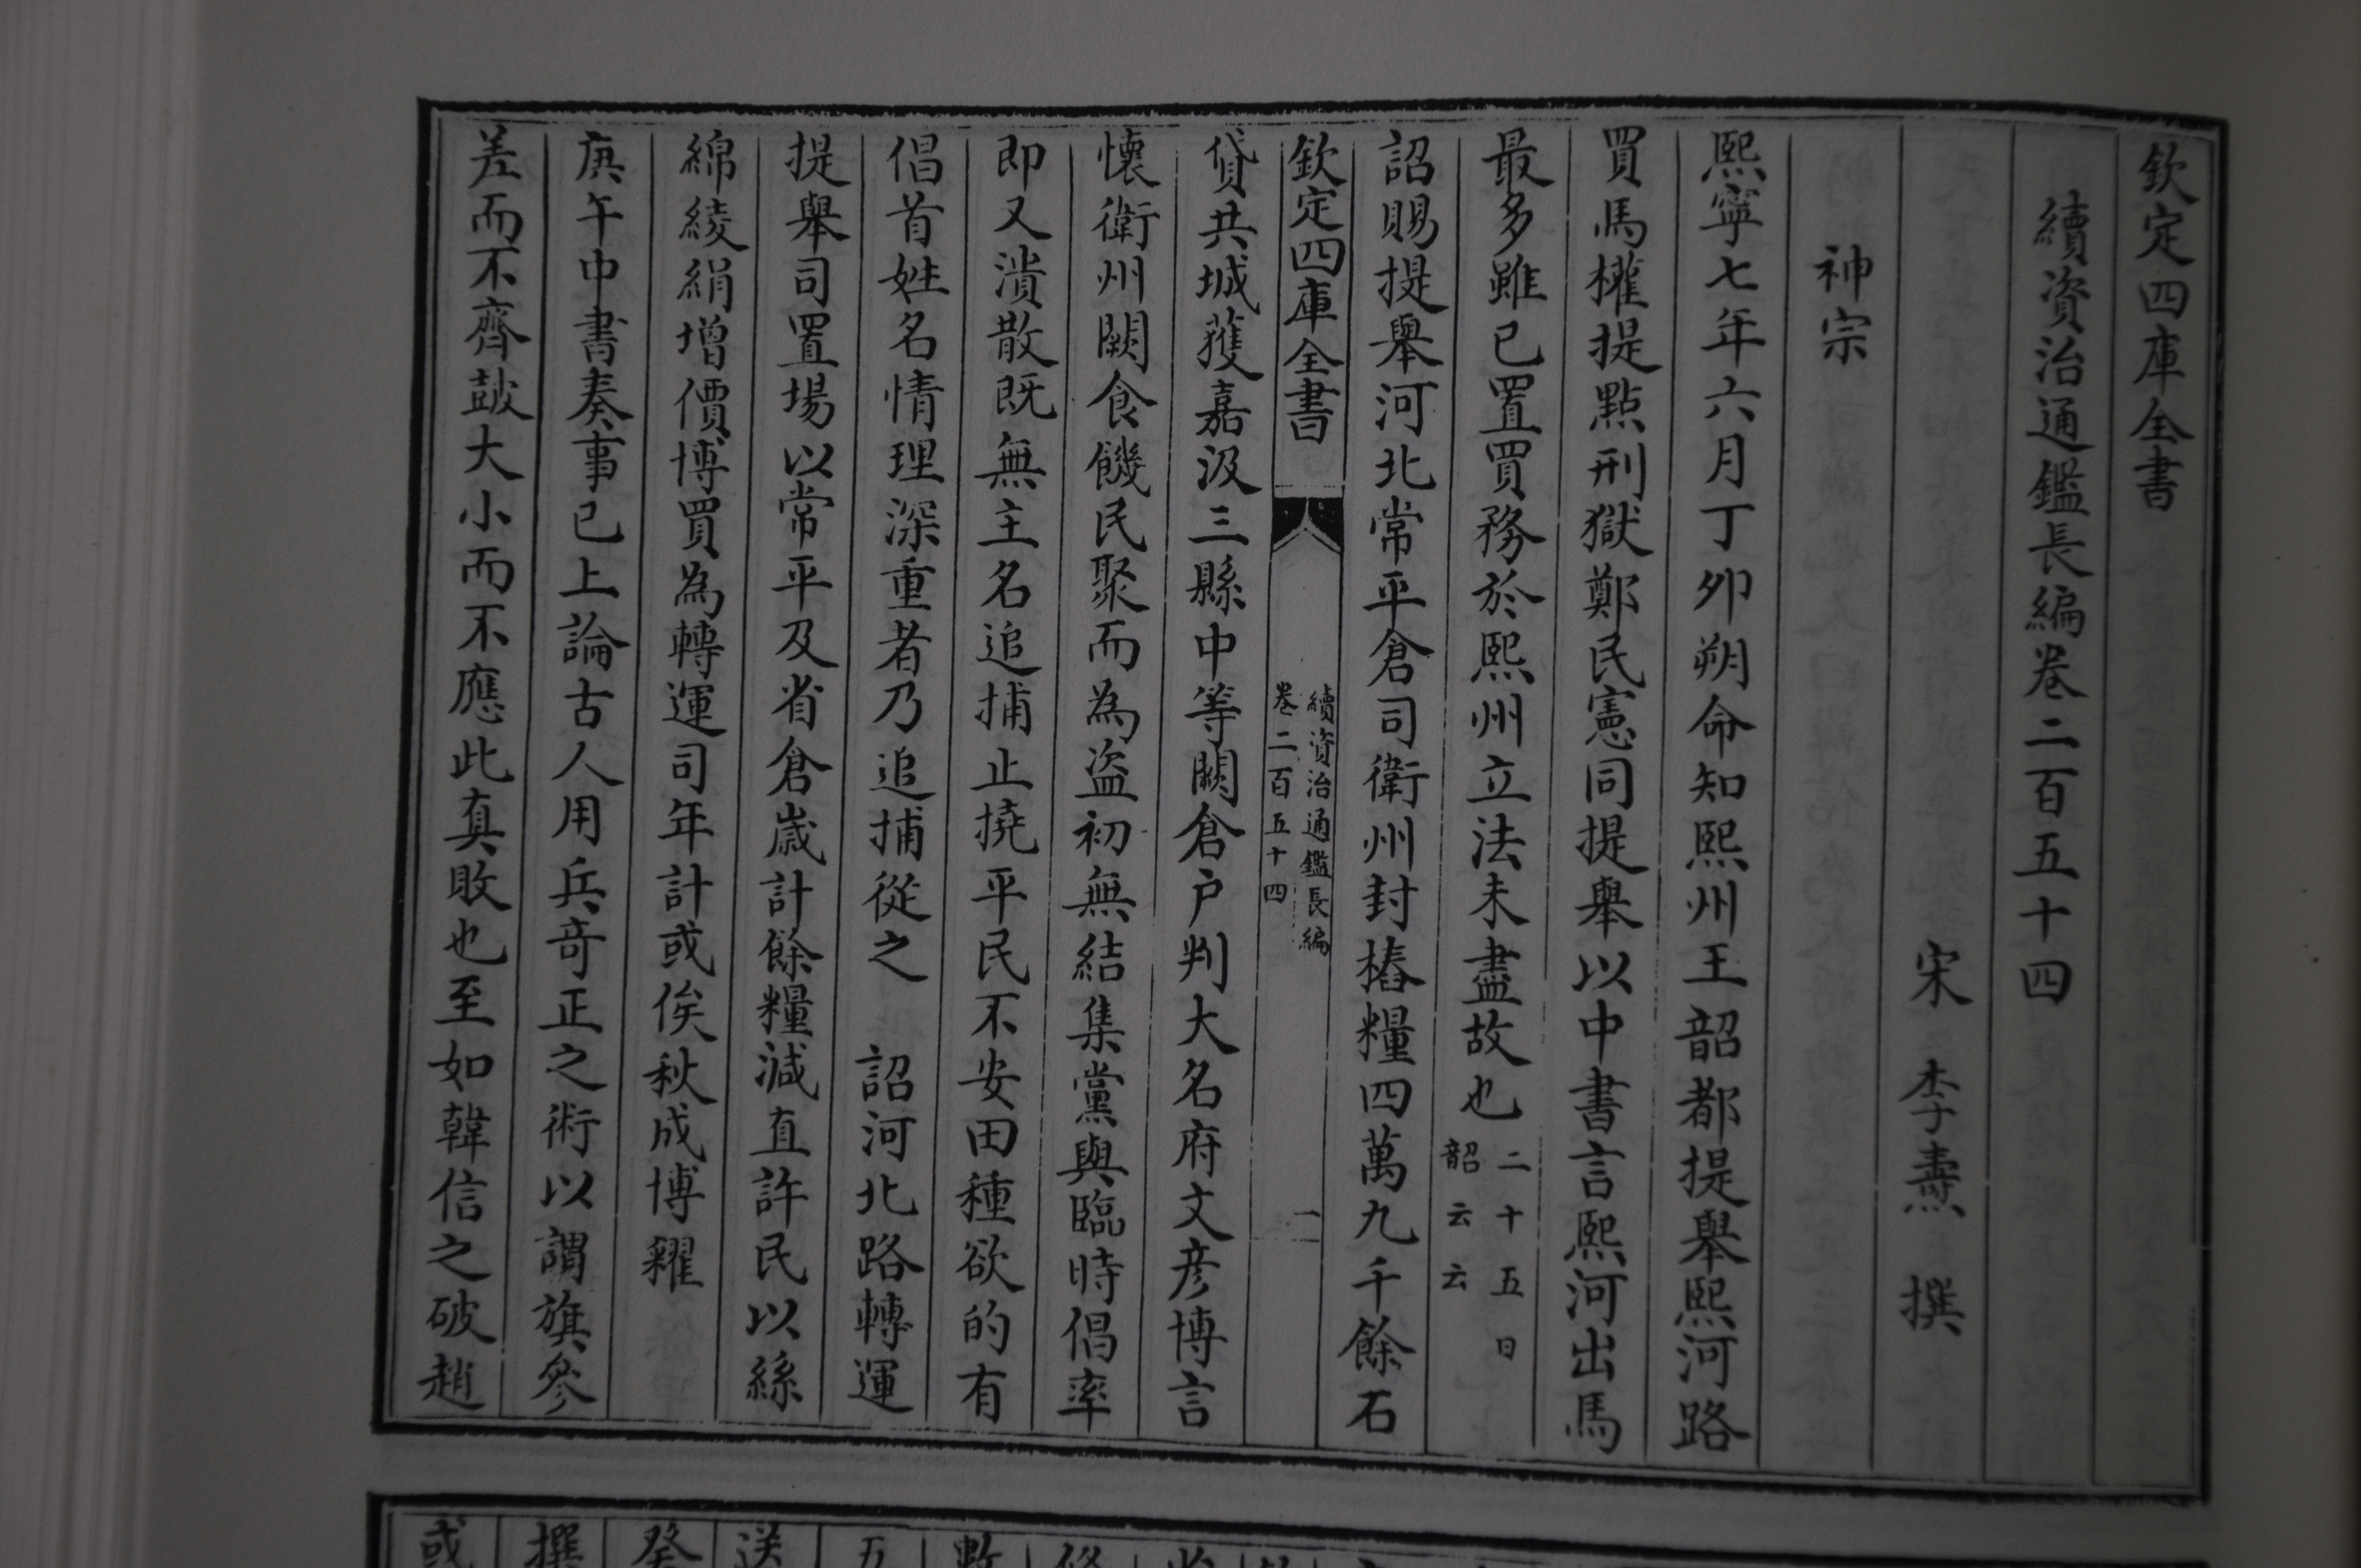 欽定四庫全書
續資治通鑑長編卷二百五十四
宋 李燾 撰
神宗
熙寧七年六月丁卯朔命知熙州王韶都提舉熙河路
買馬權提點刑獄鄭民憲同提舉以中書言熙河出馬
最多雖已置買務於熙州立法未盡故也二十五日韶云云
詔賜提舉河北常平倉司衛州封樁糧四萬九千餘石
欽定四庫全書
續資治通鑑長編
卷二百五十四
一
貸共城獲嘉汲三縣中等闕倉户判大名府文彦博言
懐衛州闕食饑民聚而為盗初無結集黨與臨時倡率
即又潰散既無主名追捕止撓平民不安田種欲的有
倡首姓名情理深重者乃追捕從之 詔河北路轉運
提舉司置場以常平及省倉嵗計餘糧減直許民以絲
綿綾絹增價博買為轉運司年計或俟秋成博糴
庚午中書奏事已上論古人用兵竒正之術以謂旗參
差而不齊鼔大小而不應此真敗也至如韓信之破趙
或
撰
癸
送
五
數